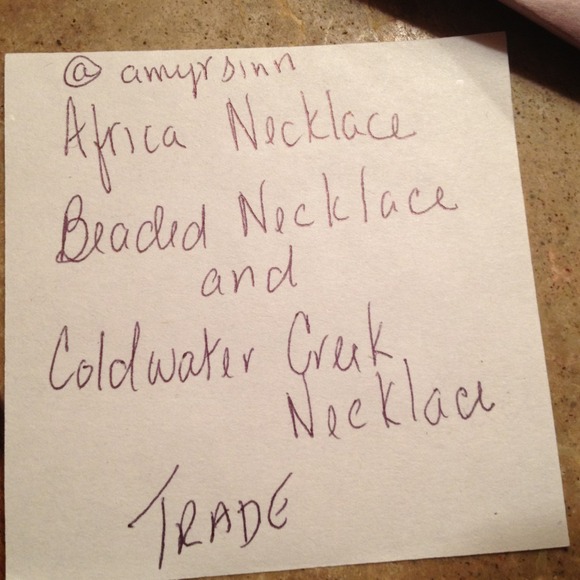 @ amyrsinn
Africa Necklace
Beaded Necklace
and
Coldwater Creek
Necklace
TRADE